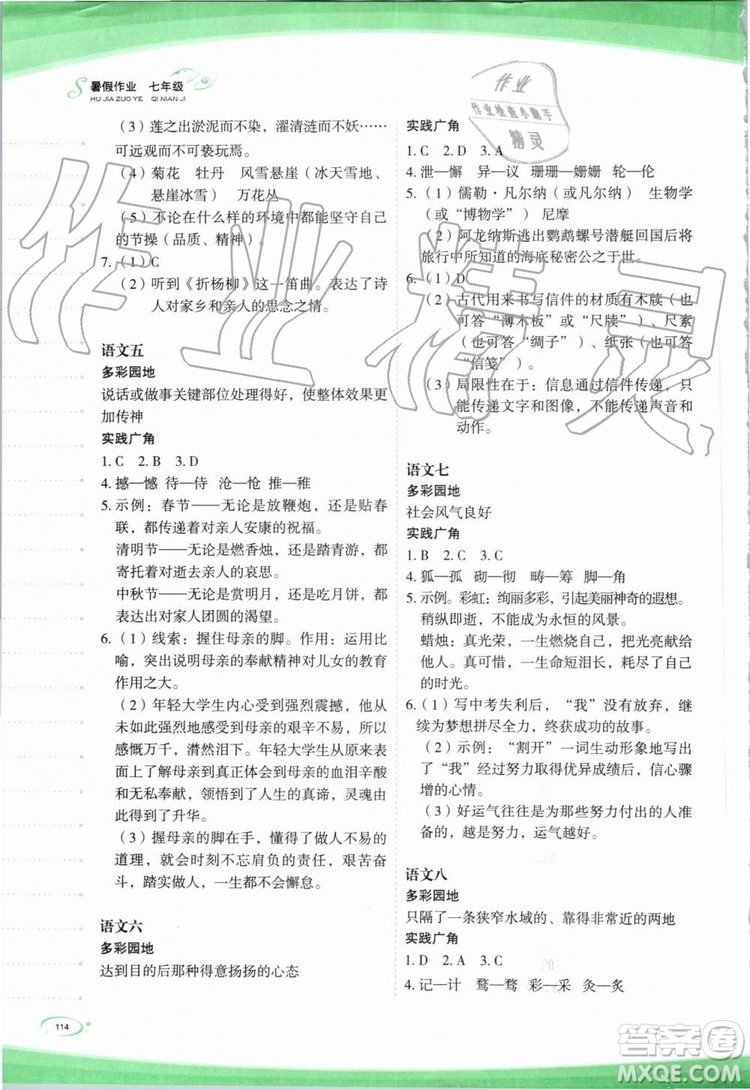 暑假作业 七年级
HU JIA ZUO YE QI NIAN JI
（3）莲之出淤泥而不染，濯清涟而不妖……
可远观而不可亵玩焉。
（4）菊花 牡丹 风雪悬崖（冰天雪地、
悬崖冰雪） 万花丛
（5）不论在什么样的环境中都能坚守自己
的节操（品质、精神）
7.（1）C
（2）听到《折杨柳》这一笛曲。表达了诗
人对家乡和亲人的思念之情。
语文五
多彩园地
说话或做事关键部位处理得好，使整体效果更
加传神
实践广角
1. C 2. B 3. D
4. 撼—憾 待—侍 沧—怆 推—稚
5. 示例：春节——无论是放鞭炮，还是贴春
联，都传递着对亲人安康的祝福。
清明节——无论是燃香烛，还是踏青游，都
寄托着对逝去亲人的哀思。
中秋节——无论是赏明月，还是吃月饼，都
表达出对家人团圆的渴望。
6.（1）线索：握住母亲的脚。作用：运用比
喻，突出说明母亲的奉献精神对儿女的教育
作用之大。
（2）年轻大学生内心受到强烈震撼，他从
未如此强烈地感受到母亲的艰辛不易，所以
感慨万千，潸然泪下。年轻大学生在现实面
前了解母亲真正体会到了母亲的血泪辛酸
和无私奉献，领悟到了人生的真谛，灵魂由
此得到了升华。
（3）握母亲的脚在手，懂得了做人不易的
道理，就会时刻不忘肩负的责任，艰苦奋
斗，踏实做人，一生都不会懈怠。
语文六
多彩园地
达到目的后那种得意扬扬的心态
114
作业
作业检查小助手
精灵
实践广角
1. C 2. D 3. A
4. 泄—懈 异—议 珊珊—姗姗 轮—伦
5.（1）儒勒·凡尔纳（或凡尔纳） 生物学
（或“博物学”） 尼摩
（2）阿龙纳斯逃出鹦鹉螺号潜艇回国后将
旅行中所知道的海底秘密公之于世。
6.（1）D
（2）古代用来书写信件的材质有木牍（也
可答“薄木板”或“尺牍”）、尺素
（也可答“绸子”）、纸张（也可答
“信笺”）。
（3）局限性在于：信息通过信件传递，只
能传递文字和图像，不能传递声音和
动作。
语文七
多彩园地
社会风气良好
实践广角
1. B 2. C 3. C
4. 狐—孤 砌—彻 畴—筹 脚—角
5. 示例。彩虹：绚丽多彩，引起美丽神奇的遐想。
稍纵即逝，不能成为永恒的风景。
蜡烛：真光荣，一生燃烧自己，照亮
他人。真可惜，一生多短泪长流。
6.（1）写中考失利后，“我”没有放弃，继
续为梦想拼尽全力，终获成功的故事。
（2）示例：“割开”一词生动形象地写出
了“我”经过努力取得优异成绩后，信心骤
增的心情。
（3）好运气往往会给那些付出的人准
备的，越是努力，运气越好。
语文八
多彩园地
只隔了一条狭窄水域的、靠得非常近的两地
实践广角
1. D 2. A 3. C
4. 记—计 鹜—骛 彩—采 灸—炙
作业精灵
答案圈
MXQE.COM